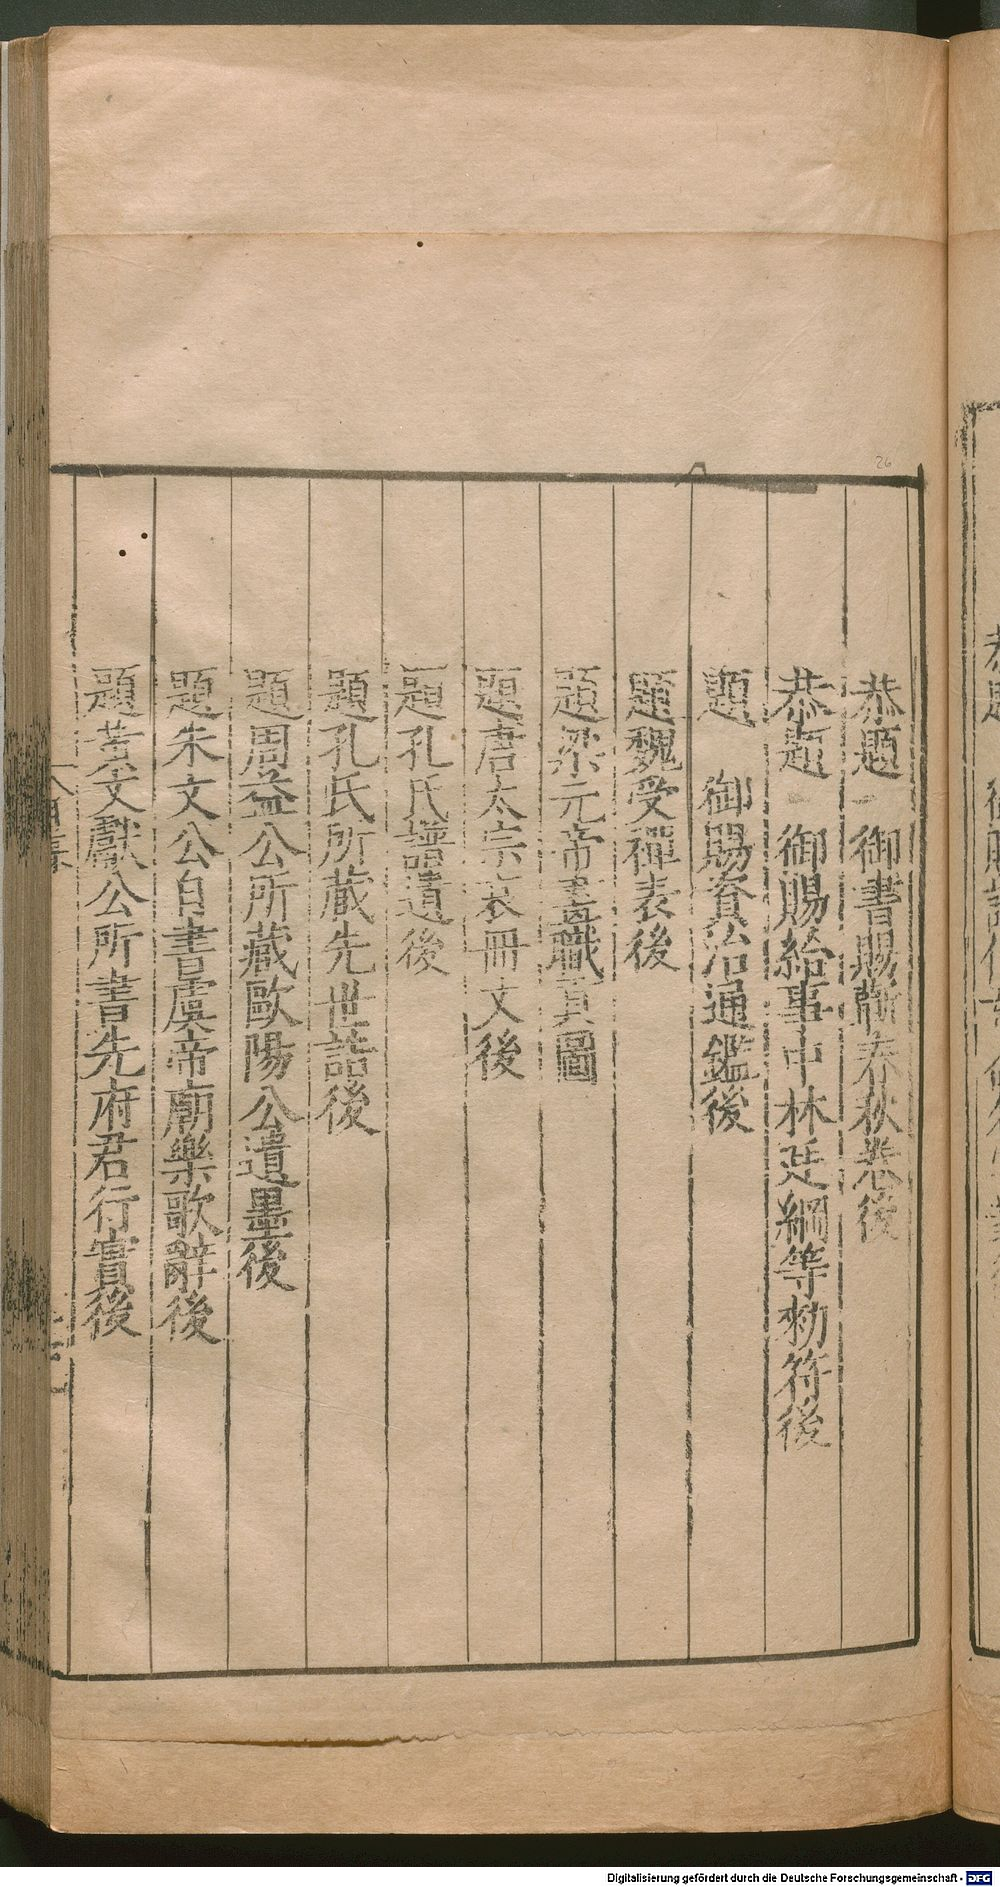 恭題　御書賜靳春秋卷後
恭題　御賜給事中林廷綱等勑符後
題　御賜資治通鑑後
題魏受禪表後
題梁元帝畫職貢圖
題唐太宗哀冊文後
題孔氏譜遺後
題孔氏所藏先世誥後
題周益公所藏歐陽公遺墨後
題朱文公自書虞帝廟樂歌辭後
題黃文獻公所書先府君行實後
26
Digitalisierung gefördert durch die Deutsche Forschungsgemeinschaft - DFG